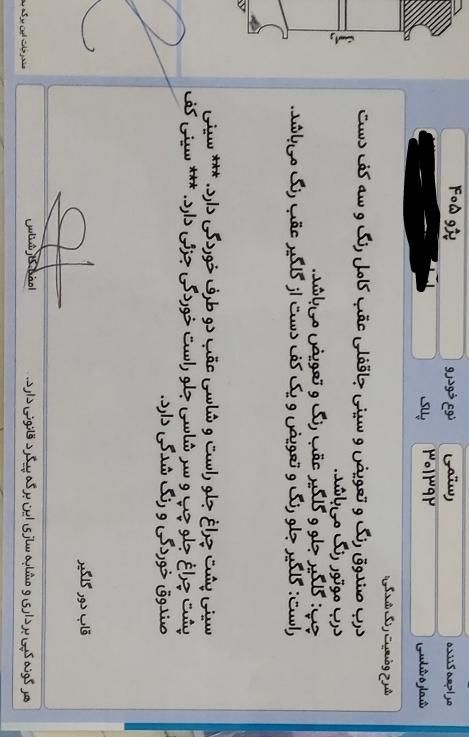 مراجعه کننده رستمی نوع خودرو پژو ۴۰۵
شماره شاسی ۳۰۱۲۹۲ پلاک
شرح وضعیت رنگ شدگی:
درب صندوق رنگ و تعویض و سینی جاقفلی عقب کامل رنگ و سه کف دست
درب موتور رنگ می‌باشد.
چپ: گلگیر جلو و گلگیر عقب رنگ و تعویض می‌باشد.
راست: گلگیر جلو رنگ و تعویض و یک کف دست از گلگیر عقب رنگ می‌باشد.
سینی پشت چراغ جلو راست و شاسی عقب دو طرف خوردگی دارد. *** سینی
پشت چراغ جلو چپ و سر شاسی جلو راست خوردگی جزئی دارد. *** سینی کف
صندوق خوردگی و رنگ شدگی دارد.
قاب دور گلگیر
امضا کارشناس
هر گونه کپی برداری و مشابه سازی این برگه پیگرد قانونی دارد.
مندرجات این برگه